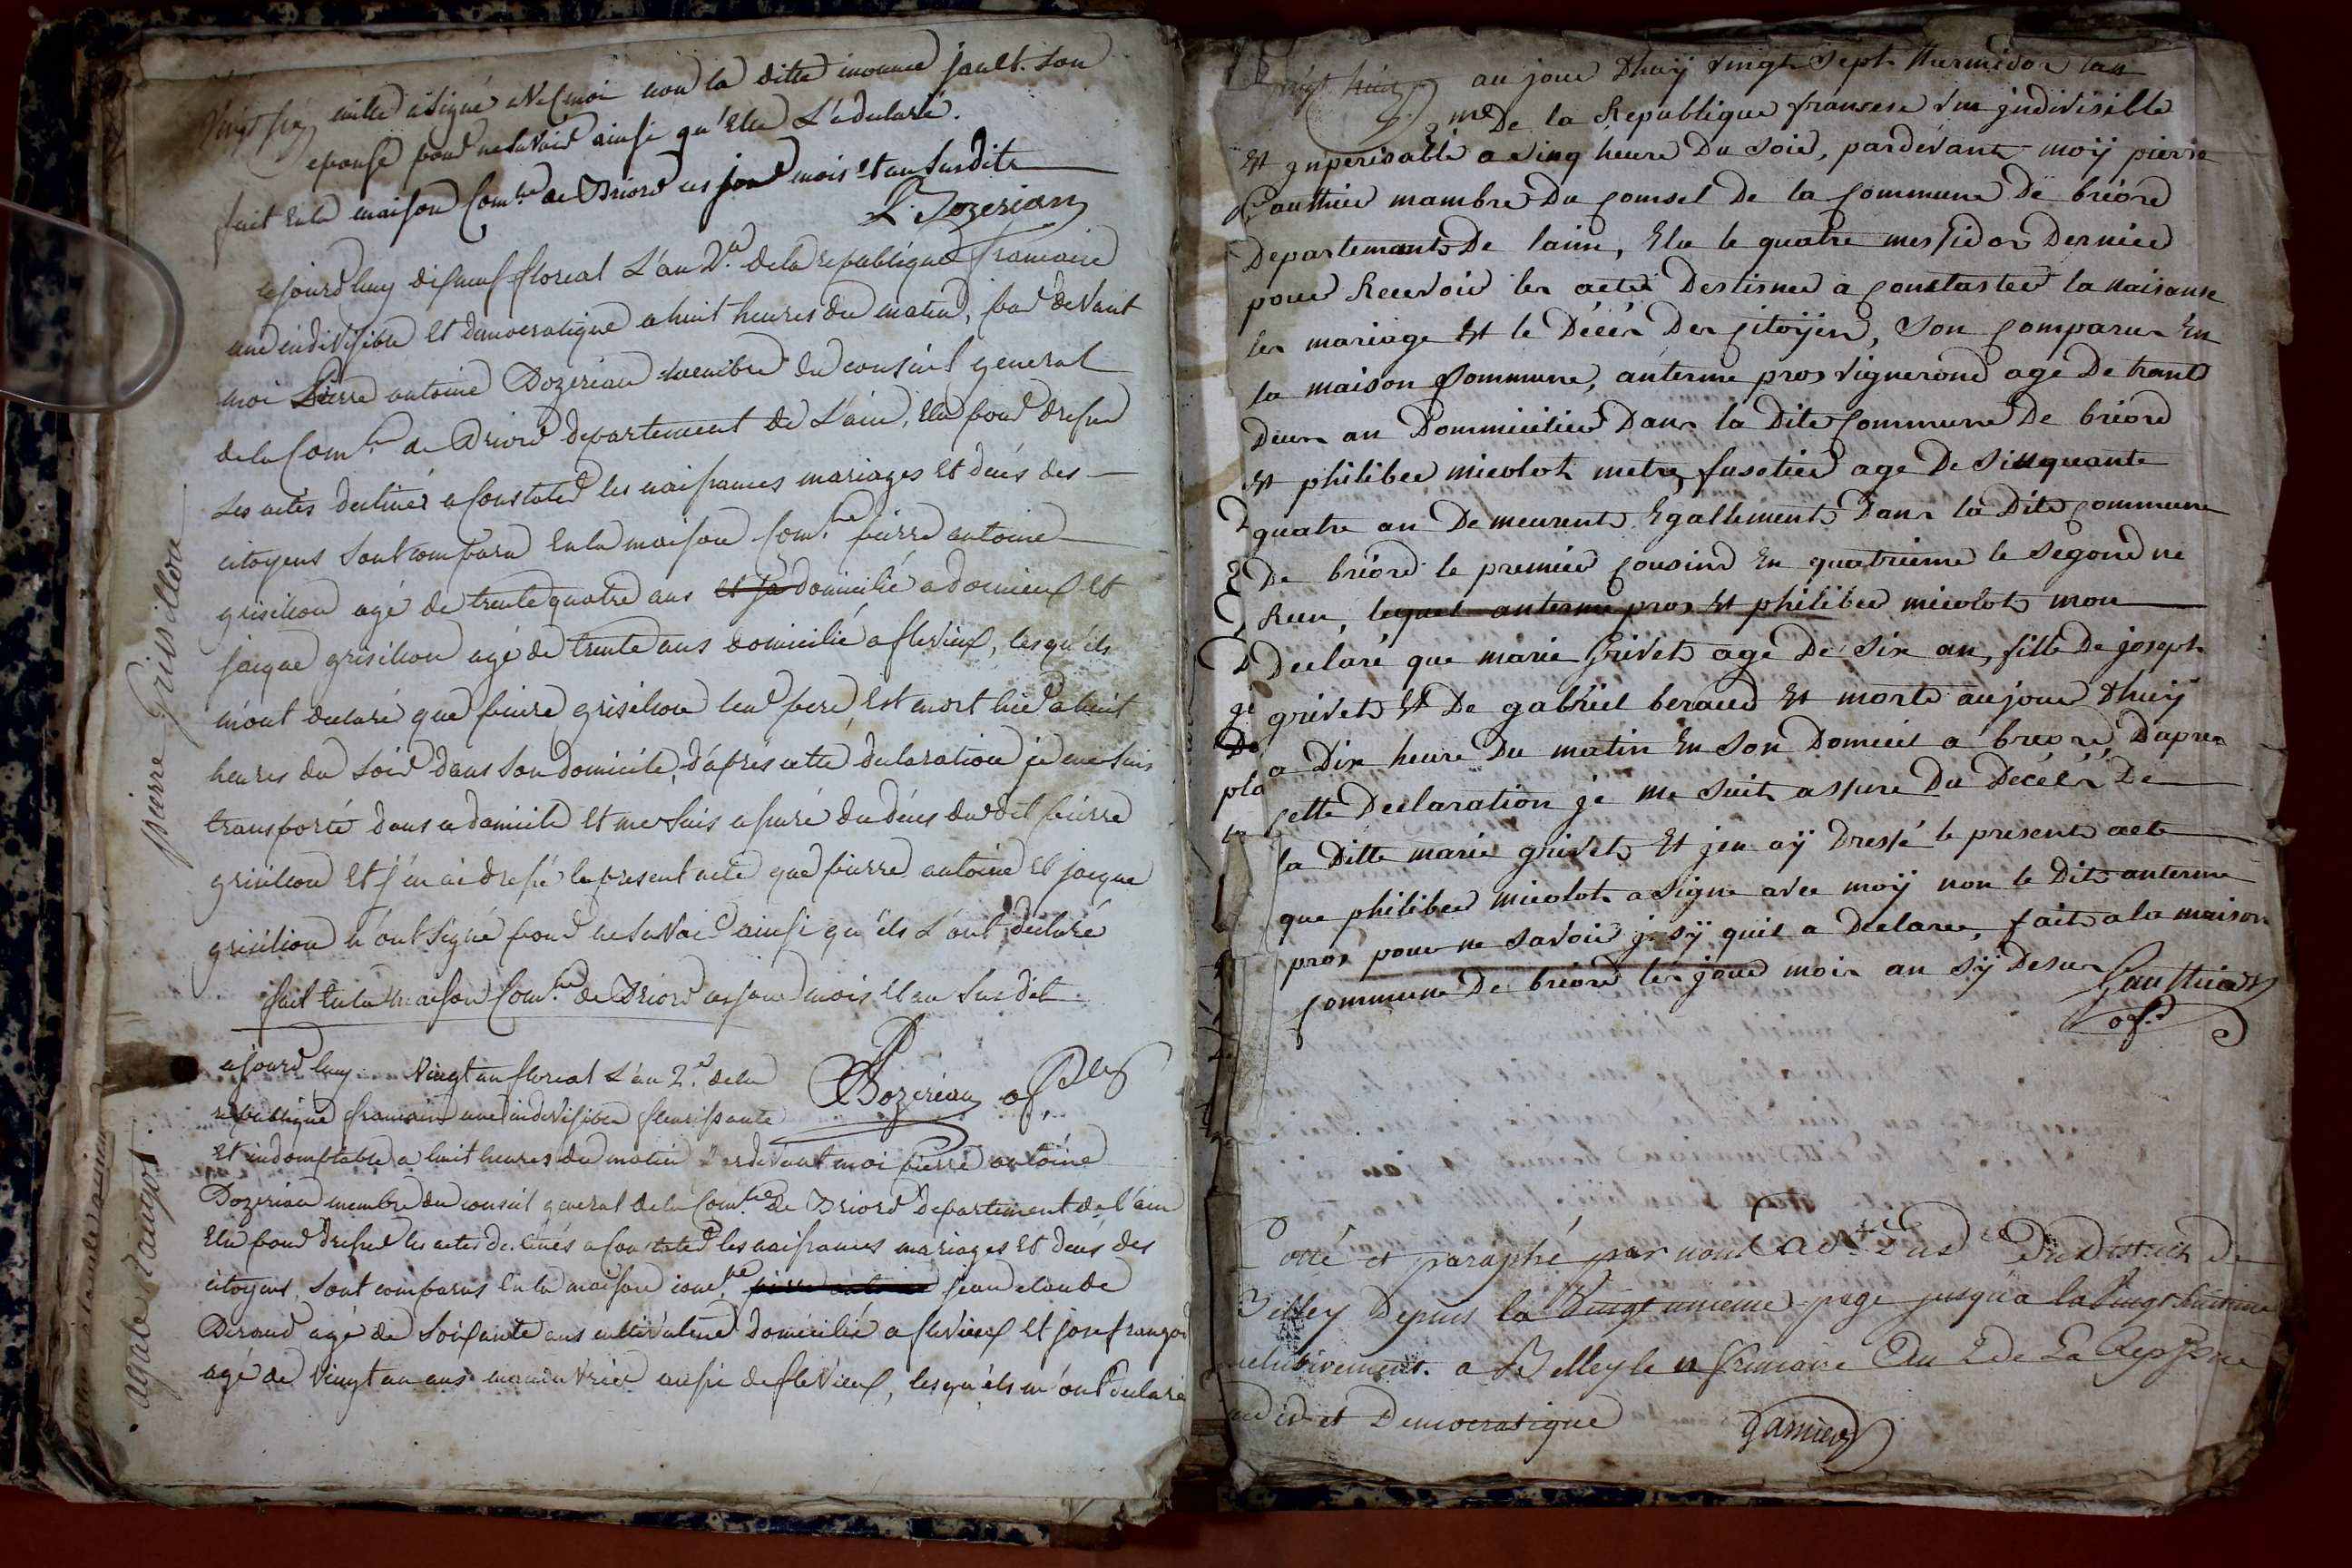 Vingt six mille a signé avec moi non la ditte jault son
epouse pour ne savoir ainsi qu'elle L'a declaré.
fait en la maison Com.ne de Briord les jour mois et an susdits
Bozerian
ajourd huy dis neuf floreal L'an 2.e de la republique francaise
une indivisible et democratique a huit heures du matin, par devant
moi Pierre antoine Bozerian membre du conseil general
de la Com.ne de Briord departement de L'ain, elu pour dresser
les actes destinés a constater les naissances mariages et decés des
citoyens sont comparu en la maison Com.ne pierre antoine
grisilion agé de trente quatre ans et sa domicilié a et
jacque grisilion agé de trente ans domicilié a flevieux, lesquels
m'ont declaré que pierre grisilion leur pere est mort hier a huit
heures du soir dans son domicile, d'après cette declaration je me suis
transporté dans ce domicile et me suis assuré du deces dudit pierre
grisilion et j'en ai dressé le present acte que pierre antoine et jacque
grisilion n'ont signé pour ne savoir ainsi qu'ils L'ont declaré
fait en la maison Com.ne de Briord les jour mois et an susdit
Bozerian off. pub
ajourd huy vingt un floreal L'an 2.e de la
republique francaise une indivisible fleurissante
et indomptable a huit heures du matin pardevant moi pierre antoine
Bozerian membre du conseil general de la Com.ne de Briord departement de l'ain
Elu pour dresser les actes destinés a constater les naissances mariages et deces des
citoyens, sont comparus en la maison com.ne pierre antoine jean claude
Beraud agé de soixante ans cultivateur domicilié a flevieux et jose françois
agé de vingt un ans manouvrier aussi de flevieux, lesquels m'ont declaré
pierre Grissillon
agate
vingt huit au jour Dhuÿ vingt Sept thermidor lan
2 me De la Republique franсese une jndivisible
Et jnperisable a sinq heure Du Soir, pardevant moÿ pierre
Gauthier mambre Du Comsel De la Commune De briord
Departemant De lain, Elu le quatre messidor Dernier
pour Recevoir les acte Destisnee a constaster la naisanse
les mariage Et le Décés Des citoÿen, Son comparu En
la maison Commune, anterme pros vigneron age De trante
Deux an Dommicilier Dans la Dite Commune De briord
Et philiber micolot metre fusatier age De Sinquante
quatre an Demeurent Egallement Dans la Dite commune
De briord le premier cousin En quatrieme le Segond ne
Rien, lequel anterme pros Et philiber micolot mon
Declaré que marie Grivet age De Six an, fille De joseph
grivet Et De gabriel beraud Et morte aujour Dhuÿ
a Dix heure Du matin En Son Domicil a briord, Dapres
cette Declaration jé me suit assure Du Décés De
la Ditte marie grivet Et jen aÿ Dressé le present acte
que philiber micolot a Signe avec moÿ non le Dit anterme
pros pour ne savoir jsÿ quil a Declare, fait a la maison
commune De briord les jour mois an sÿ Desu Gauthier
of.r
Cotté et paraphé par nous ad.r Du District De
Belley Depuis la Vingt unieme page jusqu'a la Vingt huitieme
inclusivement. a Belley le 11 frimaire an 2 de La Rep.
et Democratique garnier